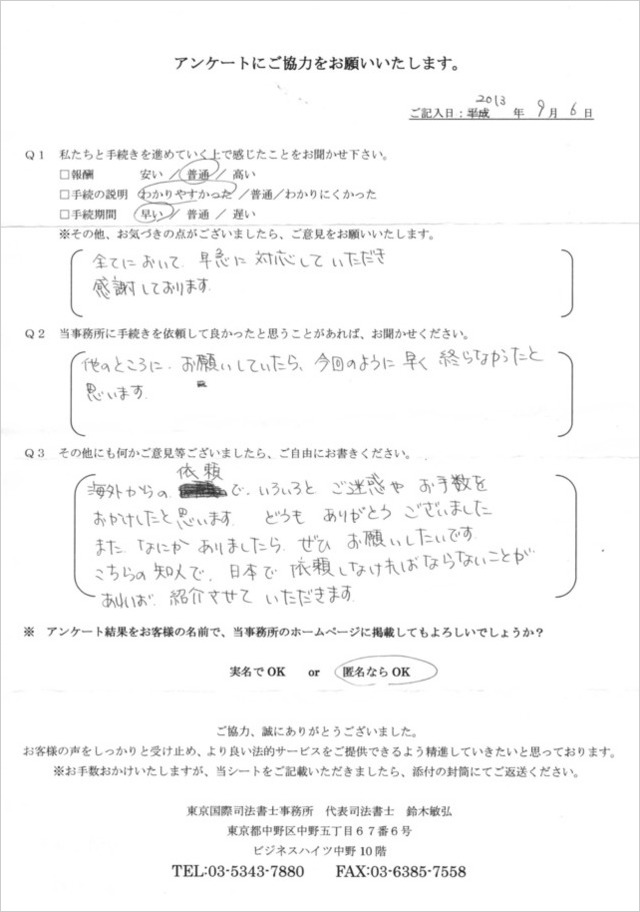 アンケートにご協力をお願いいたします。
ご記入日：平成 2013 年 9 月 6 日
Q1 私たちと手続きを進めていく上で感じたことをお聞かせ下さい。
□報酬 安い／普通／高い
□手続の説明 わかりやすかった／普通／わかりにくかった
□手続期間 早い／普通／遅い
※その他、お気づきの点がございましたら、ご意見をお願いいたします。
全てにおいて、早急に対応していただき
感謝しております。
Q2 当事務所に手続きを依頼して良かったと思うことがあれば、お聞かせください。
他のところに、お願いしていたら、今回のように早く終らなかったと
思います。
Q3 その他にも何かご意見等ございましたら、ご自由にお書きください。
海外からの依頼で、いろいろとご迷惑やお手数を
おかけしたと思います。どうもありがとうございました
また、なにかありましたら、ぜひお願いしたいです。
こちらの知人で、日本で依頼しなければならないことが
あれば、紹介させていただきます。
※ アンケート結果をお客様の名前で、当事務所のホームページに掲載してもよろしいでしょうか？
実名でOK or 匿名ならOK
ご協力、誠にありがとうございました。
お客様の声をしっかりと受け止め、より良い法的サービスをご提供できるよう精進していきたいと思っております。
※お手数おかけいたしますが、当シートをご記載いただきましたら、添付の封筒にてご返送ください。
東京国際司法書士事務所 代表司法書士 鈴木敏弘
東京都中野区中野五丁目６７番６号
ビジネスハイツ中野10階
TEL:03-5343-7880 FAX:03-6385-7558